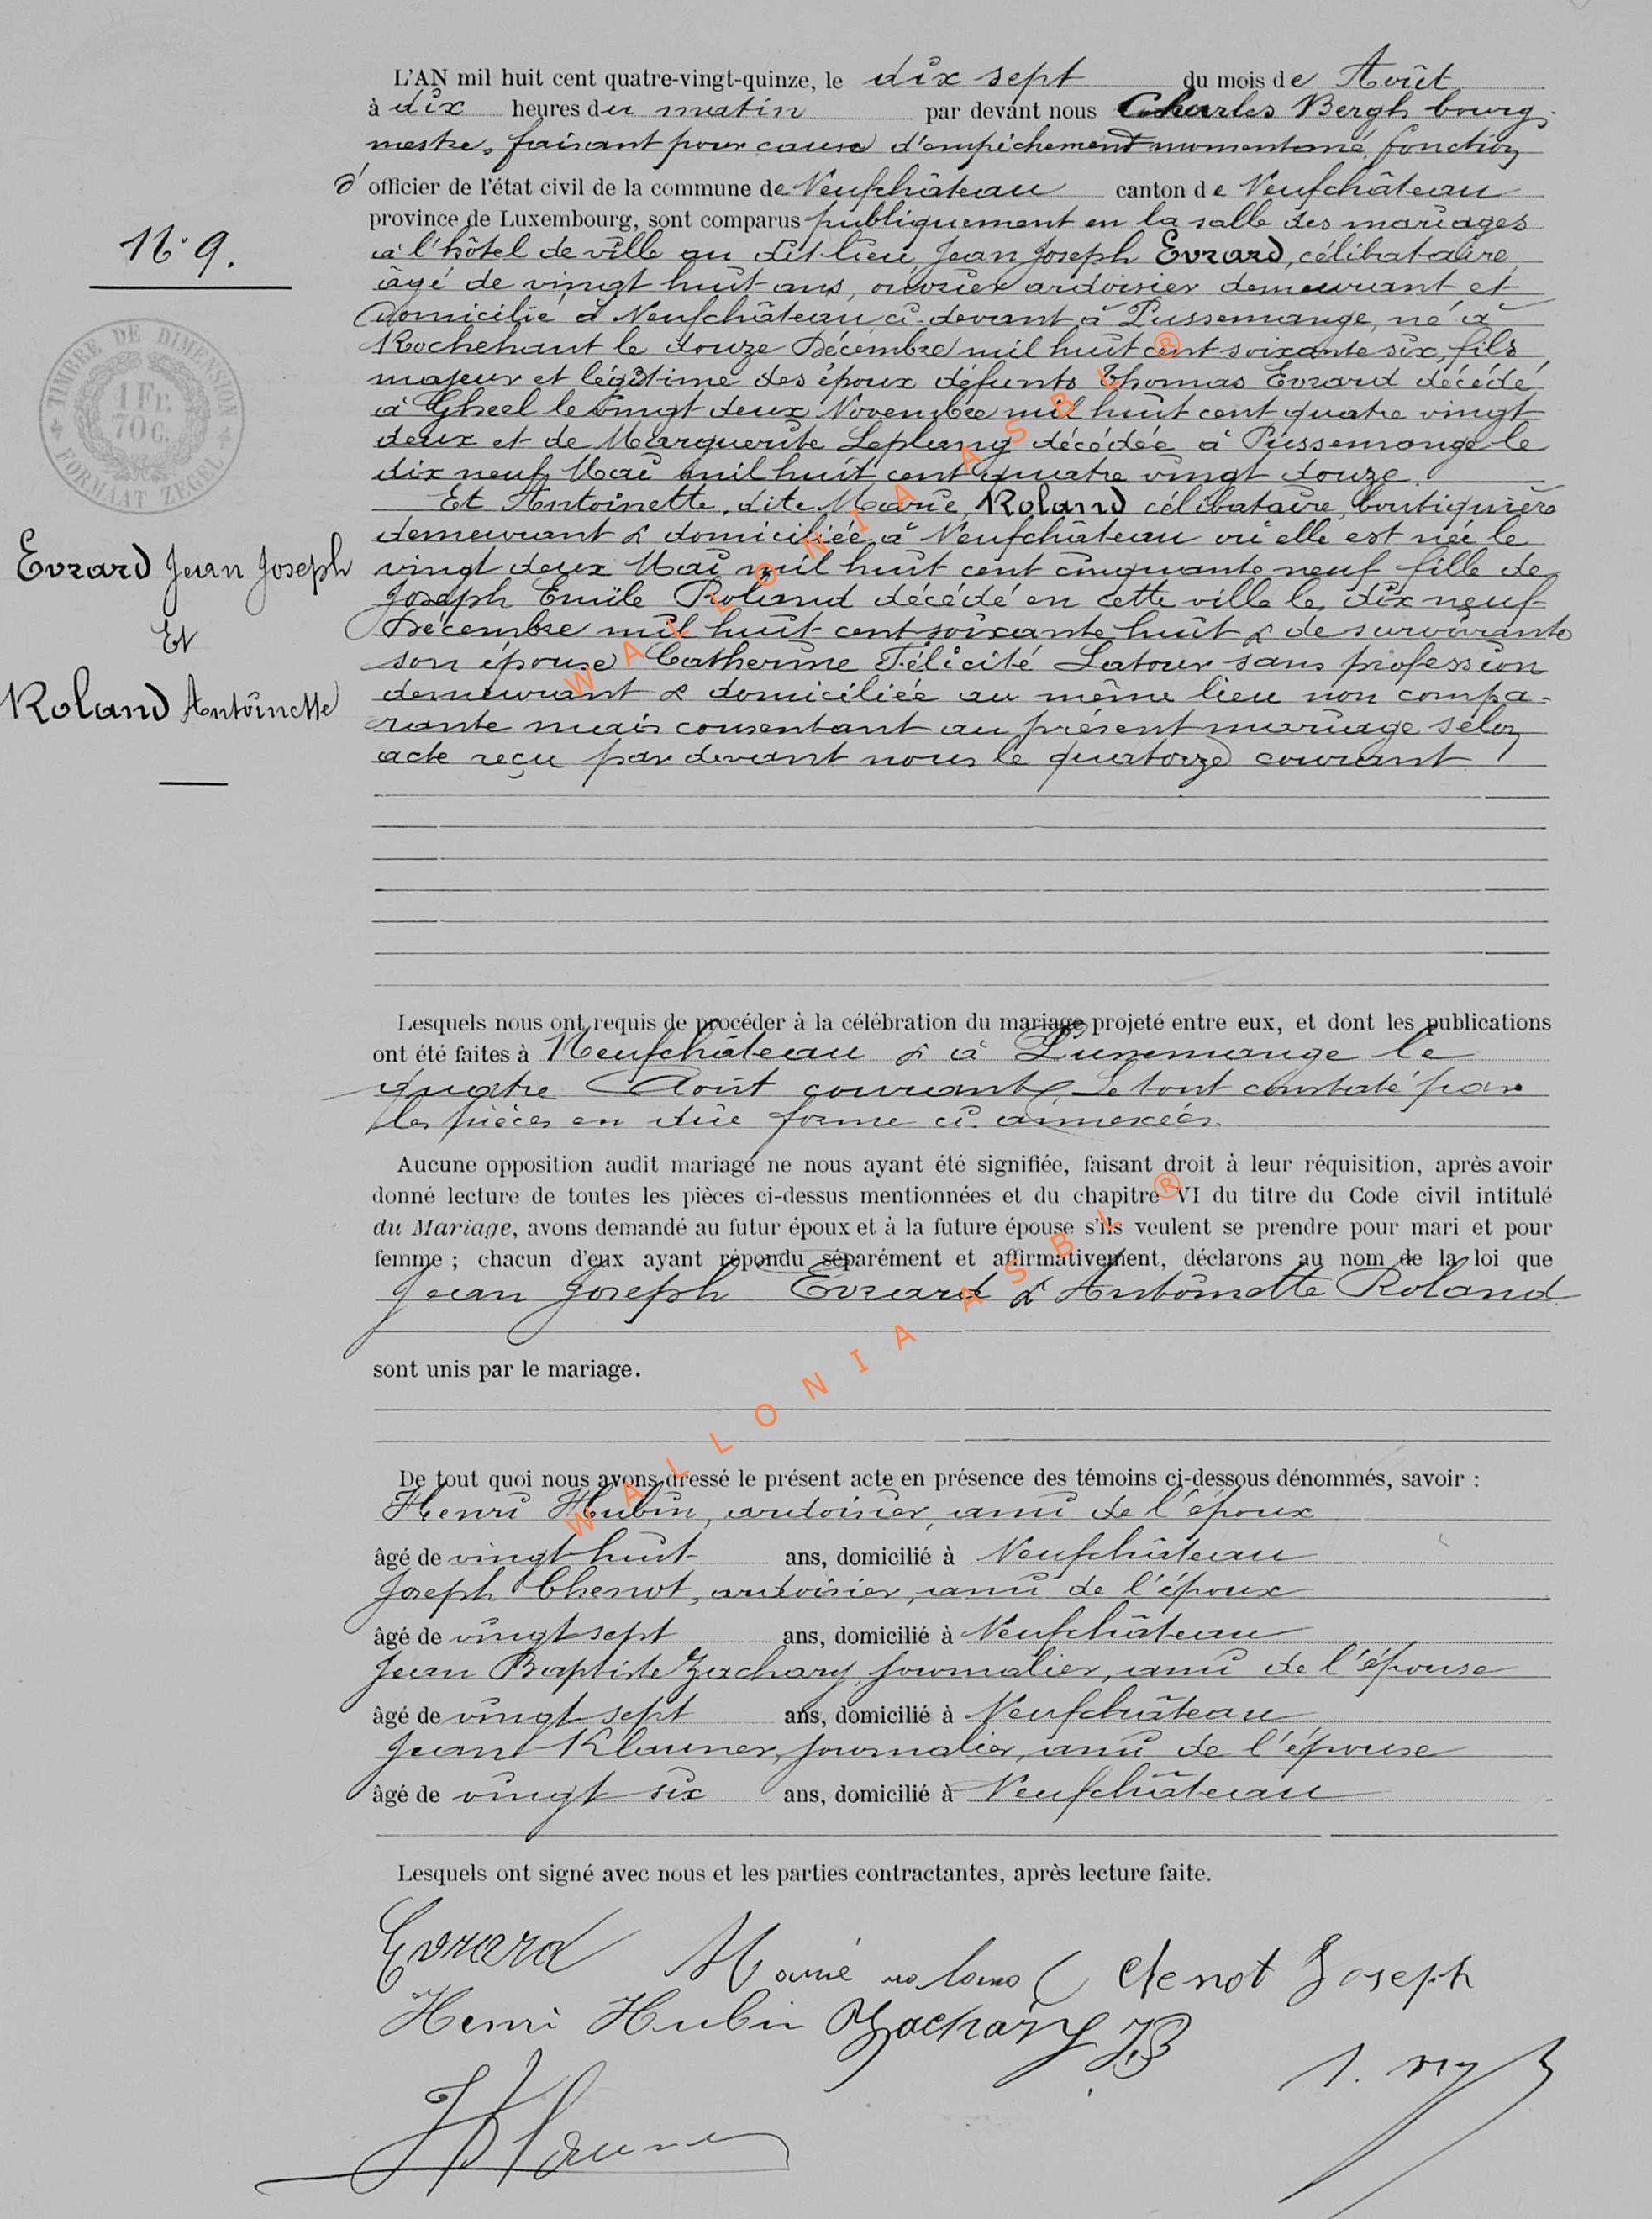 L'AN mil huit cent quatre-vingt-quinze, le dix sept du mois de Août
à dix heures du matin par devant nous Charles Bergh bourg-
mestre, faisant pour cause d'empêchement momentané fonction
d'officier de l'état civil de la commune de Neufchâteau canton de Neufchâteau
province de Luxembourg, sont comparus publiquement en la salle des mariages
N° 9.
à l'hôtel de ville au dit lieu, Jean Joseph Evrard, célibataire,
âgé de vingt huit ans, ouvrier ardoisier demeurant et
domicilié à Neufchâteau, ci-devant à Pussemange, né à
Rochehaut le douze Décembre mil huit cent soixante six, fils
majeur et légitime des époux défunts Thomas Evrard décédé
à Gheel le vingt deux Novembre mil huit cent quatre vingt
deux et de Marguerite Leplang décédée à Pussemange le
dix neuf Mai mil huit cent quatre vingt douze.
TIMBRE DE DIMENSION
1 Fr.
70 C.
FORMAAT ZEGEL
Et Antoinette, dite Marie, Roland célibataire, boutiquière
demeurant & domiciliée à Neufchâteau où elle est née le
vingt deux Mai mil huit cent cinquante neuf fille de
Joseph Emile Roland décédé en cette ville le dix neuf
Décembre mil huit cent soixante huit & de survivante
son épouse Catherine Félicité Latour sans profession
demeurant & domiciliée au même lieu non compa-
rante mais consentant au présent mariage selon
acte reçu par devant nous le quatorze courant.
Evrard Jean Joseph
Et
Roland Antoinette
Lesquels nous ont requis de procéder à la célébration du mariage projeté entre eux, et dont les publications
ont été faites à Neufchâteau & à Pussemange le
quatre Août courant. Le tout constaté par
les pièces en due forme ci-annexées.
Aucune opposition audit mariage ne nous ayant été signifiée, faisant droit à leur réquisition, après avoir
donné lecture de toutes les pièces ci-dessus mentionnées et du chapitre VI du titre du Code civil intitulé
du Mariage, avons demandé au futur époux et à la future épouse s'ils veulent se prendre pour mari et pour
femme ; chacun d'eux ayant répondu séparément et affirmativement, déclarons au nom de la loi que
Jean Joseph Evrard & Antoinette Roland
sont unis par le mariage.
De tout quoi nous avons dressé le présent acte en présence des témoins ci-dessous dénommés, savoir :
Henri Hubin, ardoisier, ami de l'époux
âgé de vingt huit ans, domicilié à Neufchâteau
Joseph Chenot, ardoisier, ami de l'époux
âgé de vingt sept ans, domicilié à Neufchâteau
Jean Baptiste Zachary, journalier, ami de l'épouse
âgé de vingt sept ans, domicilié à Neufchâteau
Jean Klauner, journalier, ami de l'épouse
âgé de vingt six ans, domicilié à Neufchâteau
Lesquels ont signé avec nous et les parties contractantes, après lecture faite.
Evrard Marie roland Chenot Joseph
Henri Hubin Zachary JB
J Klauner
WALLONIA ASBL®
WALLONIA ASBL®